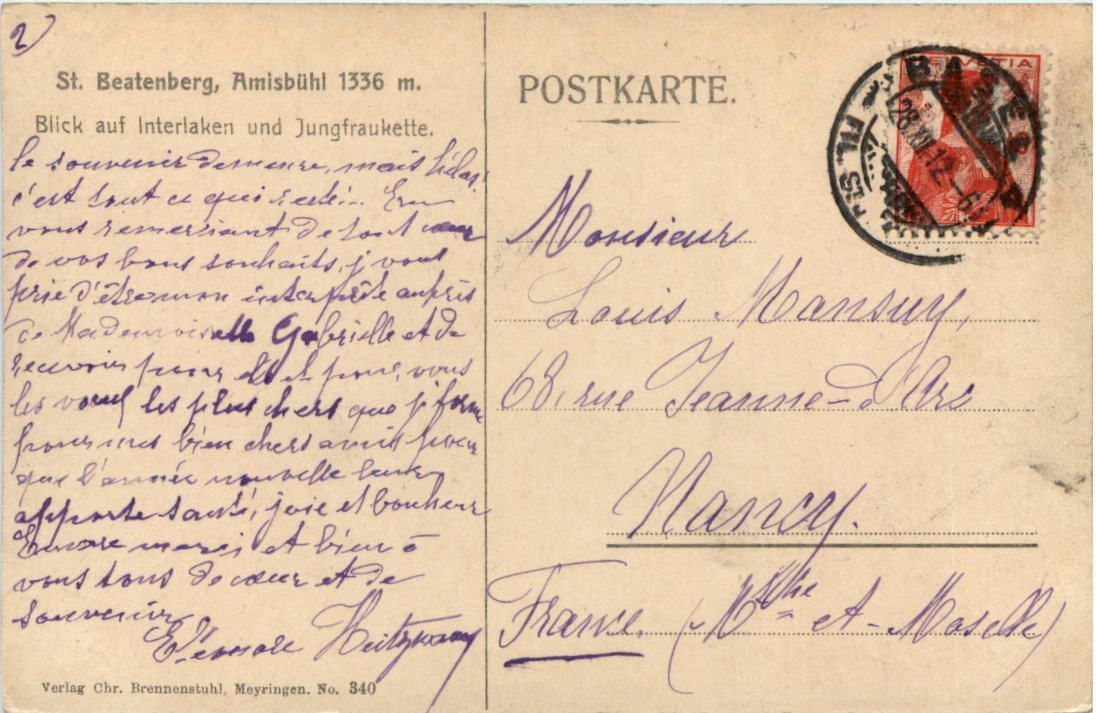 2)
St. Beatenberg, Amisbühl 1336 m.
Blick auf Interlaken und Jungfraukette.
le souvenir demeure, mais hélas!
c'est tout ce qui reste. En
vous remerciant de tout cœur
de vos bons souhaits, je vous
prie d'être mon interprète auprès
de Mademoiselle Gabrielle et de
recevoir pour elle et pour vous
les vœux les plus chers que je forme
pour mes bien chers amis pour
que l'année nouvelle leur
apporte santé, joie et bonheur
Encore merci et bien à
vous tous de cœur et de
souvenir
Eléonore
Verlag Chr. Brennenstuhl, Meyringen. No. 340
POSTKARTE.
HELVETIA
BASEL
28.XII.12.-6
FIL.
Monsieur
Louis Mansuy,
68, rue Jeanne-d'Arc
Nancy.
France. (Mthe et-Moselle)